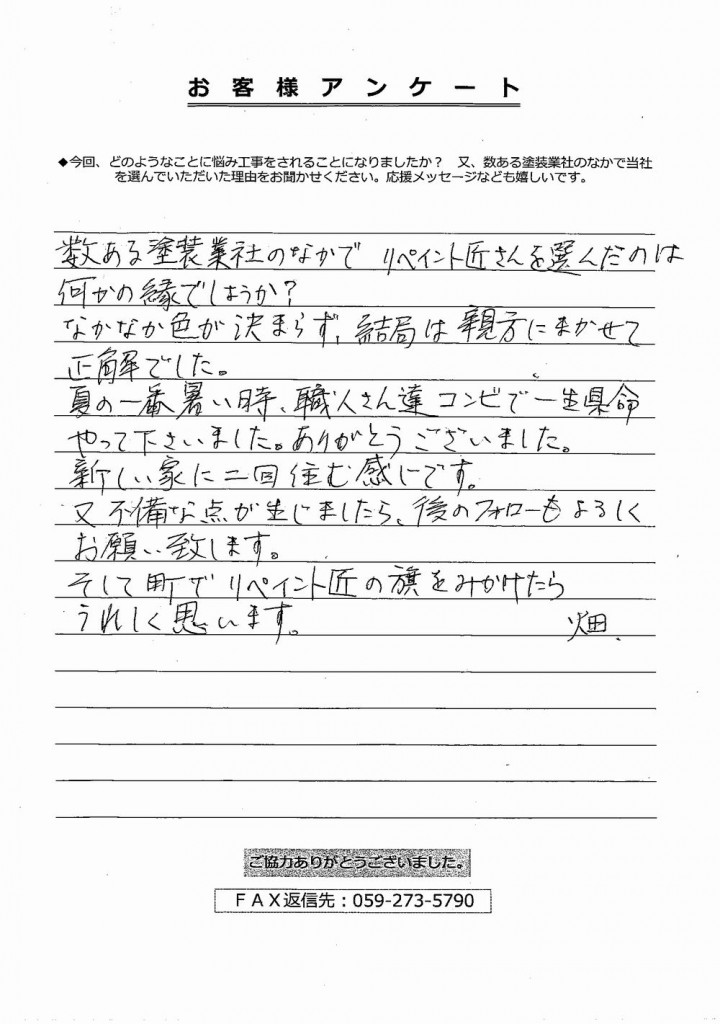 お客様アンケート
◆今回、どのようなことに悩み工事をされることになりましたか？　又、数ある塗装業社のなかで当社
を選んでいただいた理由をお聞かせください。応援メッセージなども嬉しいです。
数ある塗装業社のなかで リペイント匠さんを選んだのは
何かの縁でしょうか？
なかなか色が決まらず、結局は親方にまかせて
正解でした。
夏の一番暑い時、職人さん達コンビで一生県命
やって下さいました。ありがとうございました。
新しい家に二回住む感じです。
又不備な点が生じましたら、後のフォローもよろしく
お願い致します。
そして町でリペイント匠の旗をみかけたら
うれしく思います。　畑
ご協力ありがとうございました。
ＦＡＸ返信先：059-273-5790